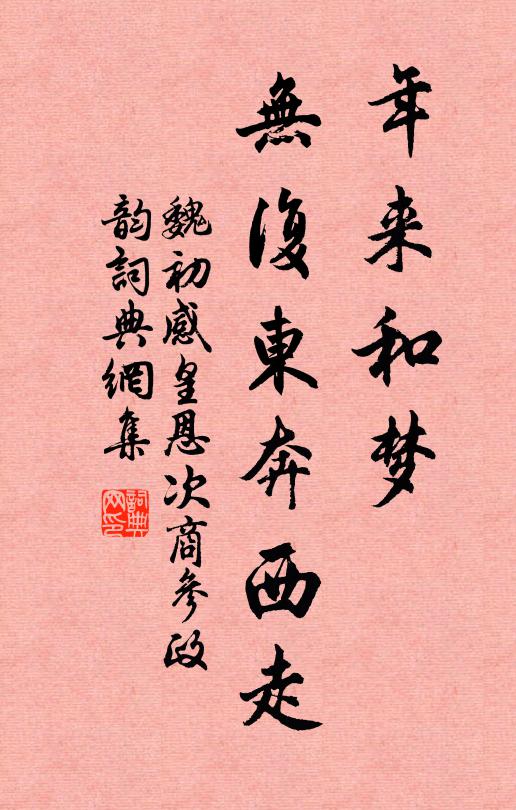 年来和梦
無復東奔西走
魏初感皇恩次商參政
韵詞典網集
詞典网印